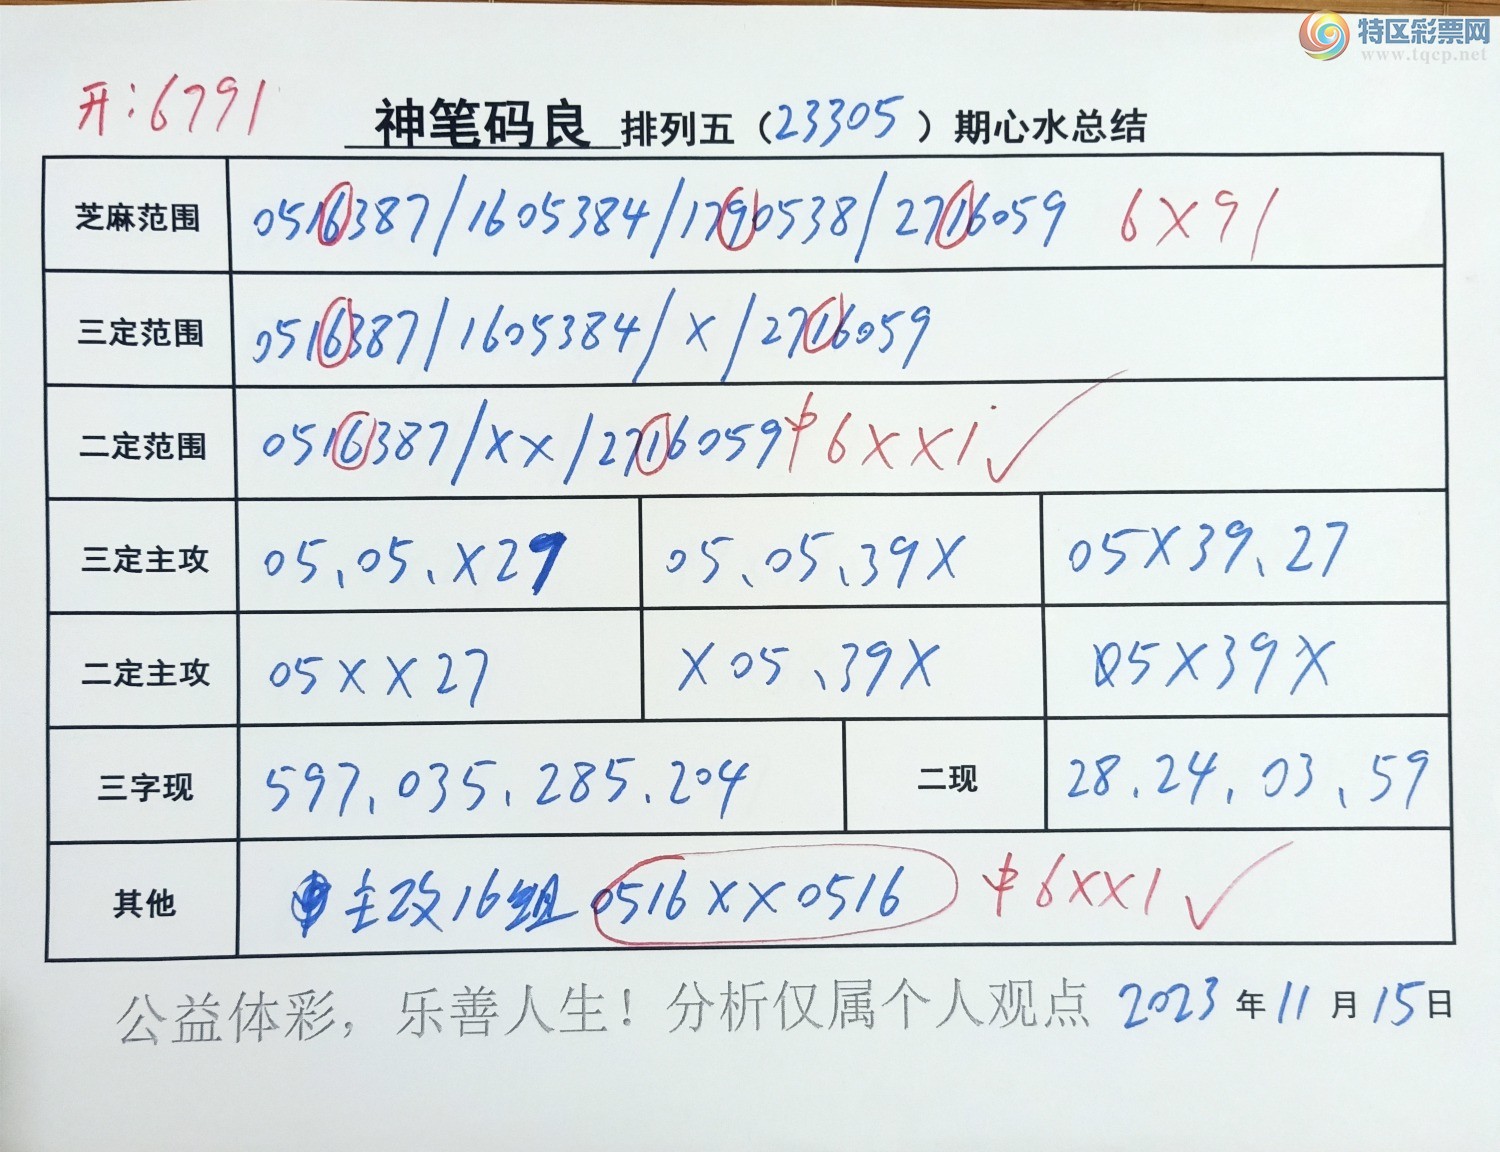 特区彩票网
www.tqcp.net
开:6791
神笔码良 排列五（23305）期心水总结
芝麻范围 0516387/1605384/1790538/2716059 6X91
三定范围 0516387/1605384/X/2716059
二定范围 0516387/XX/2716059 中6XX1
三定主攻 05、05、X29 05、05、39X 05X39、27
二定主攻 05XX27 X05、39X 05X39X
三字现 597、035、285、204 二现 28、24、03、59
其他 主攻16组 0516XX0516 中6XX1
公益体彩，乐善人生！分析仅属个人观点 2023年11月15日